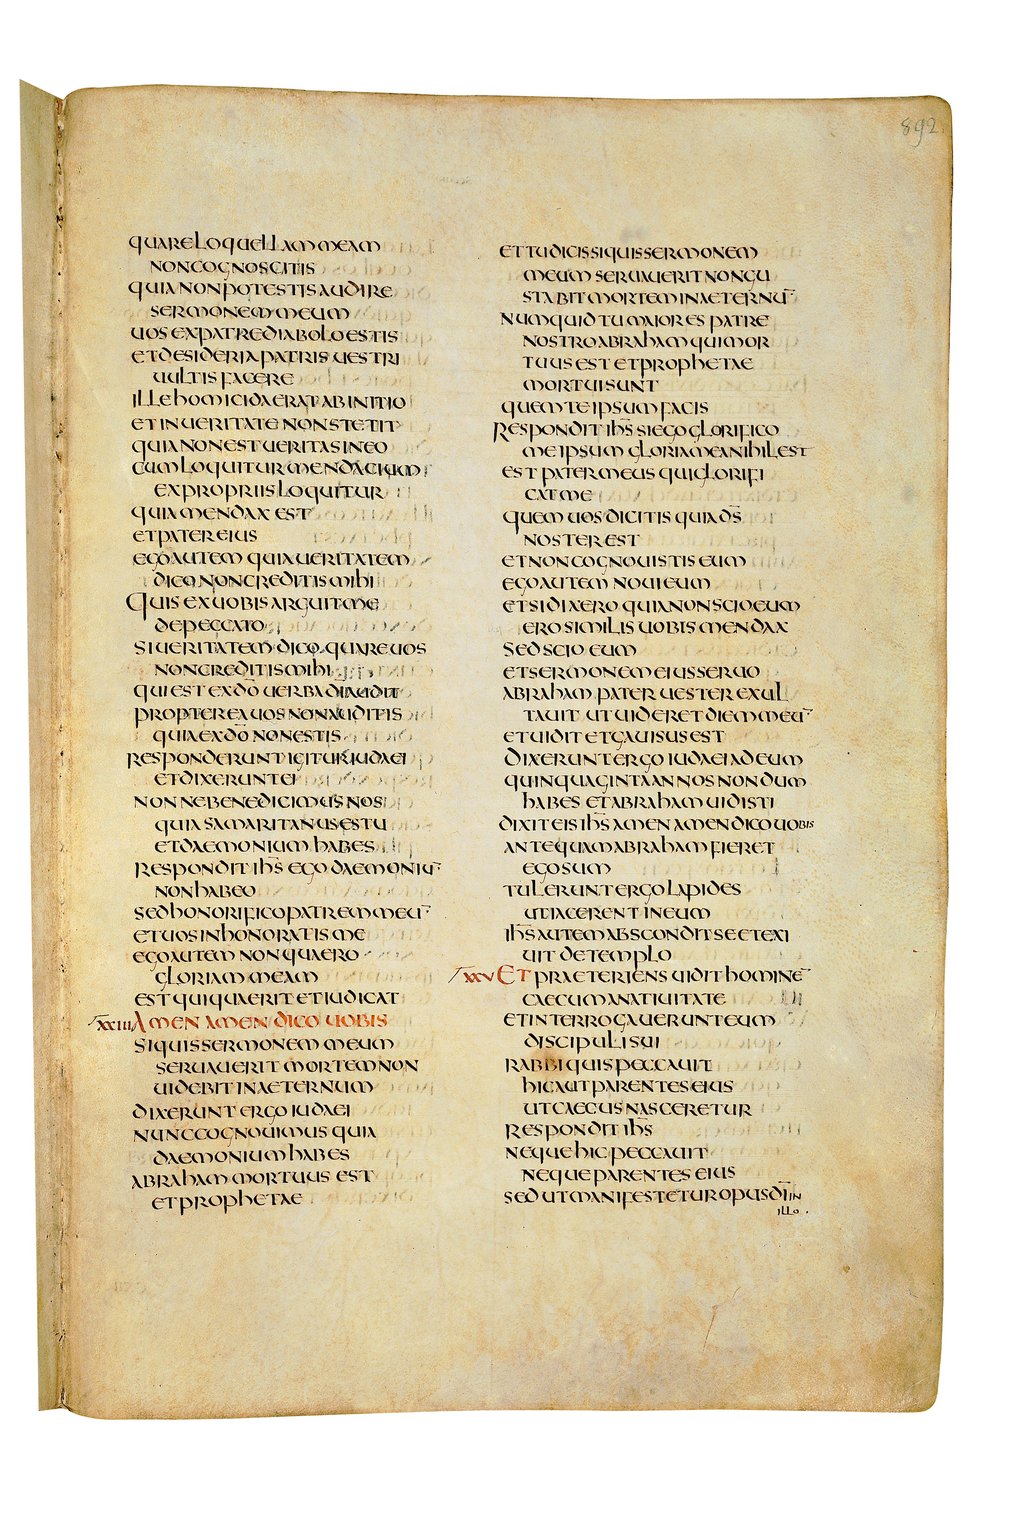 892
quare loquellam meam
non cognoscitis
quia non potestis audire
sermonem meum
uos ex patre diabolo estis
et desideria patris uestri
uultis facere
ille homicida erat ab initio
et in ueritate non stetit
quia non est ueritas in eo
cum loquitur mendacium
ex propriis loquitur
quia mendax est
et pater eius
ego autem quia ueritatem
dico non creditis mihi
Quis ex uobis arguit me
de peccato
si ueritatem dico quare uos
non creditis mihi
qui est ex dō uerba dī audit
propterea uos non auditis
quia ex dō non estis
responderunt igitur iudaei
et dixerunt ei
nonne bene dicimus nos
quia samaritanus es tu
et daemonium habes
respondit ihs̄ ego daemoniū
non habeo
sed honorifico patrem meū
et uos inhonoratis me
ego autem non quaero
gloriam meam
est qui quaerit et iudicat
xxiiii Amen amen dico uobis
si quis sermonem meum
seruauerit mortem non
uidebit in aeternum
dixerunt ergo iudaei
nunc cognouimus quia
daemonium habes
abraham mortuus est
et prophetae
et tu dicis si quis sermonem
meum seruauerit non gu
stabit mortem in aeternū
numquid tu maior es patre
nostro abraham qui mor
tuus est et prophetae
mortui sunt
quem te ipsum facis
Respondit ihs̄ si ego glorifico
me ipsum gloria mea nihil est
est pater meus qui glorifi
cat me
quem uos dicitis quia ds̄
noster est
et non cognouistis eum
ego autem noui eum
et si dixero quia non scio eum
ero similis uobis mendax
sed scio eum
et sermonem eius seruo
abraham pater uester exul
tauit ut uideret diem meū
et uidit et gauisus est
Dixerunt ergo iudaei ad eum
quinquaginta annos nondum
habes et abraham uidisti
dixit eis ihs̄ amen amen dico uobis
antequam abraham fieret
ego sum
tulerunt ergo lapides
ut iacerent in eum
ihs̄ autem abscondit se et exi
uit de templo
xxv Et praeteriens uidit hominē
caecum a natiuitate
et interrogauerunt eum
discipuli sui
rabbi quis peccauit
hic aut parentes eius
ut caecus nasceretur
respondit ihs̄
neque hic peccauit
neque parentes eius
sed ut manifestetur opus dī in
illo